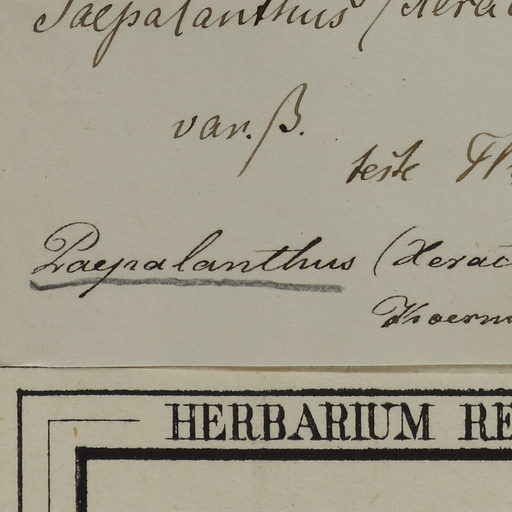 Paepalanthus (Xera
var. β.
teste
Paepalanthus (Xerac
Koern
HERBARIUM RE